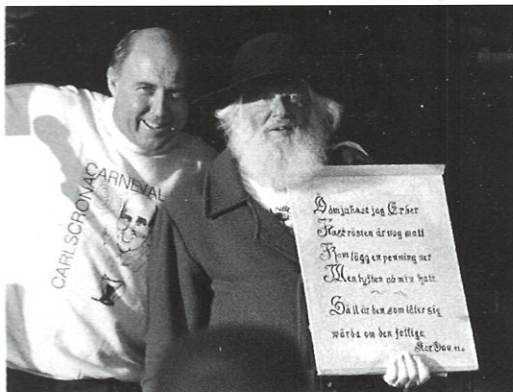 CARLSCRONACARNEVAL
Ödmjukast jag Er ber
Fast rösten är nog matt
Kom lägg en penning ner
Men lyften min hatt
Säll är den som låter sig
wårda om den fattiga
Dav 41